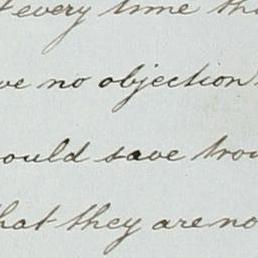 every time tha
ve no objection
ould save trou
hat they are no